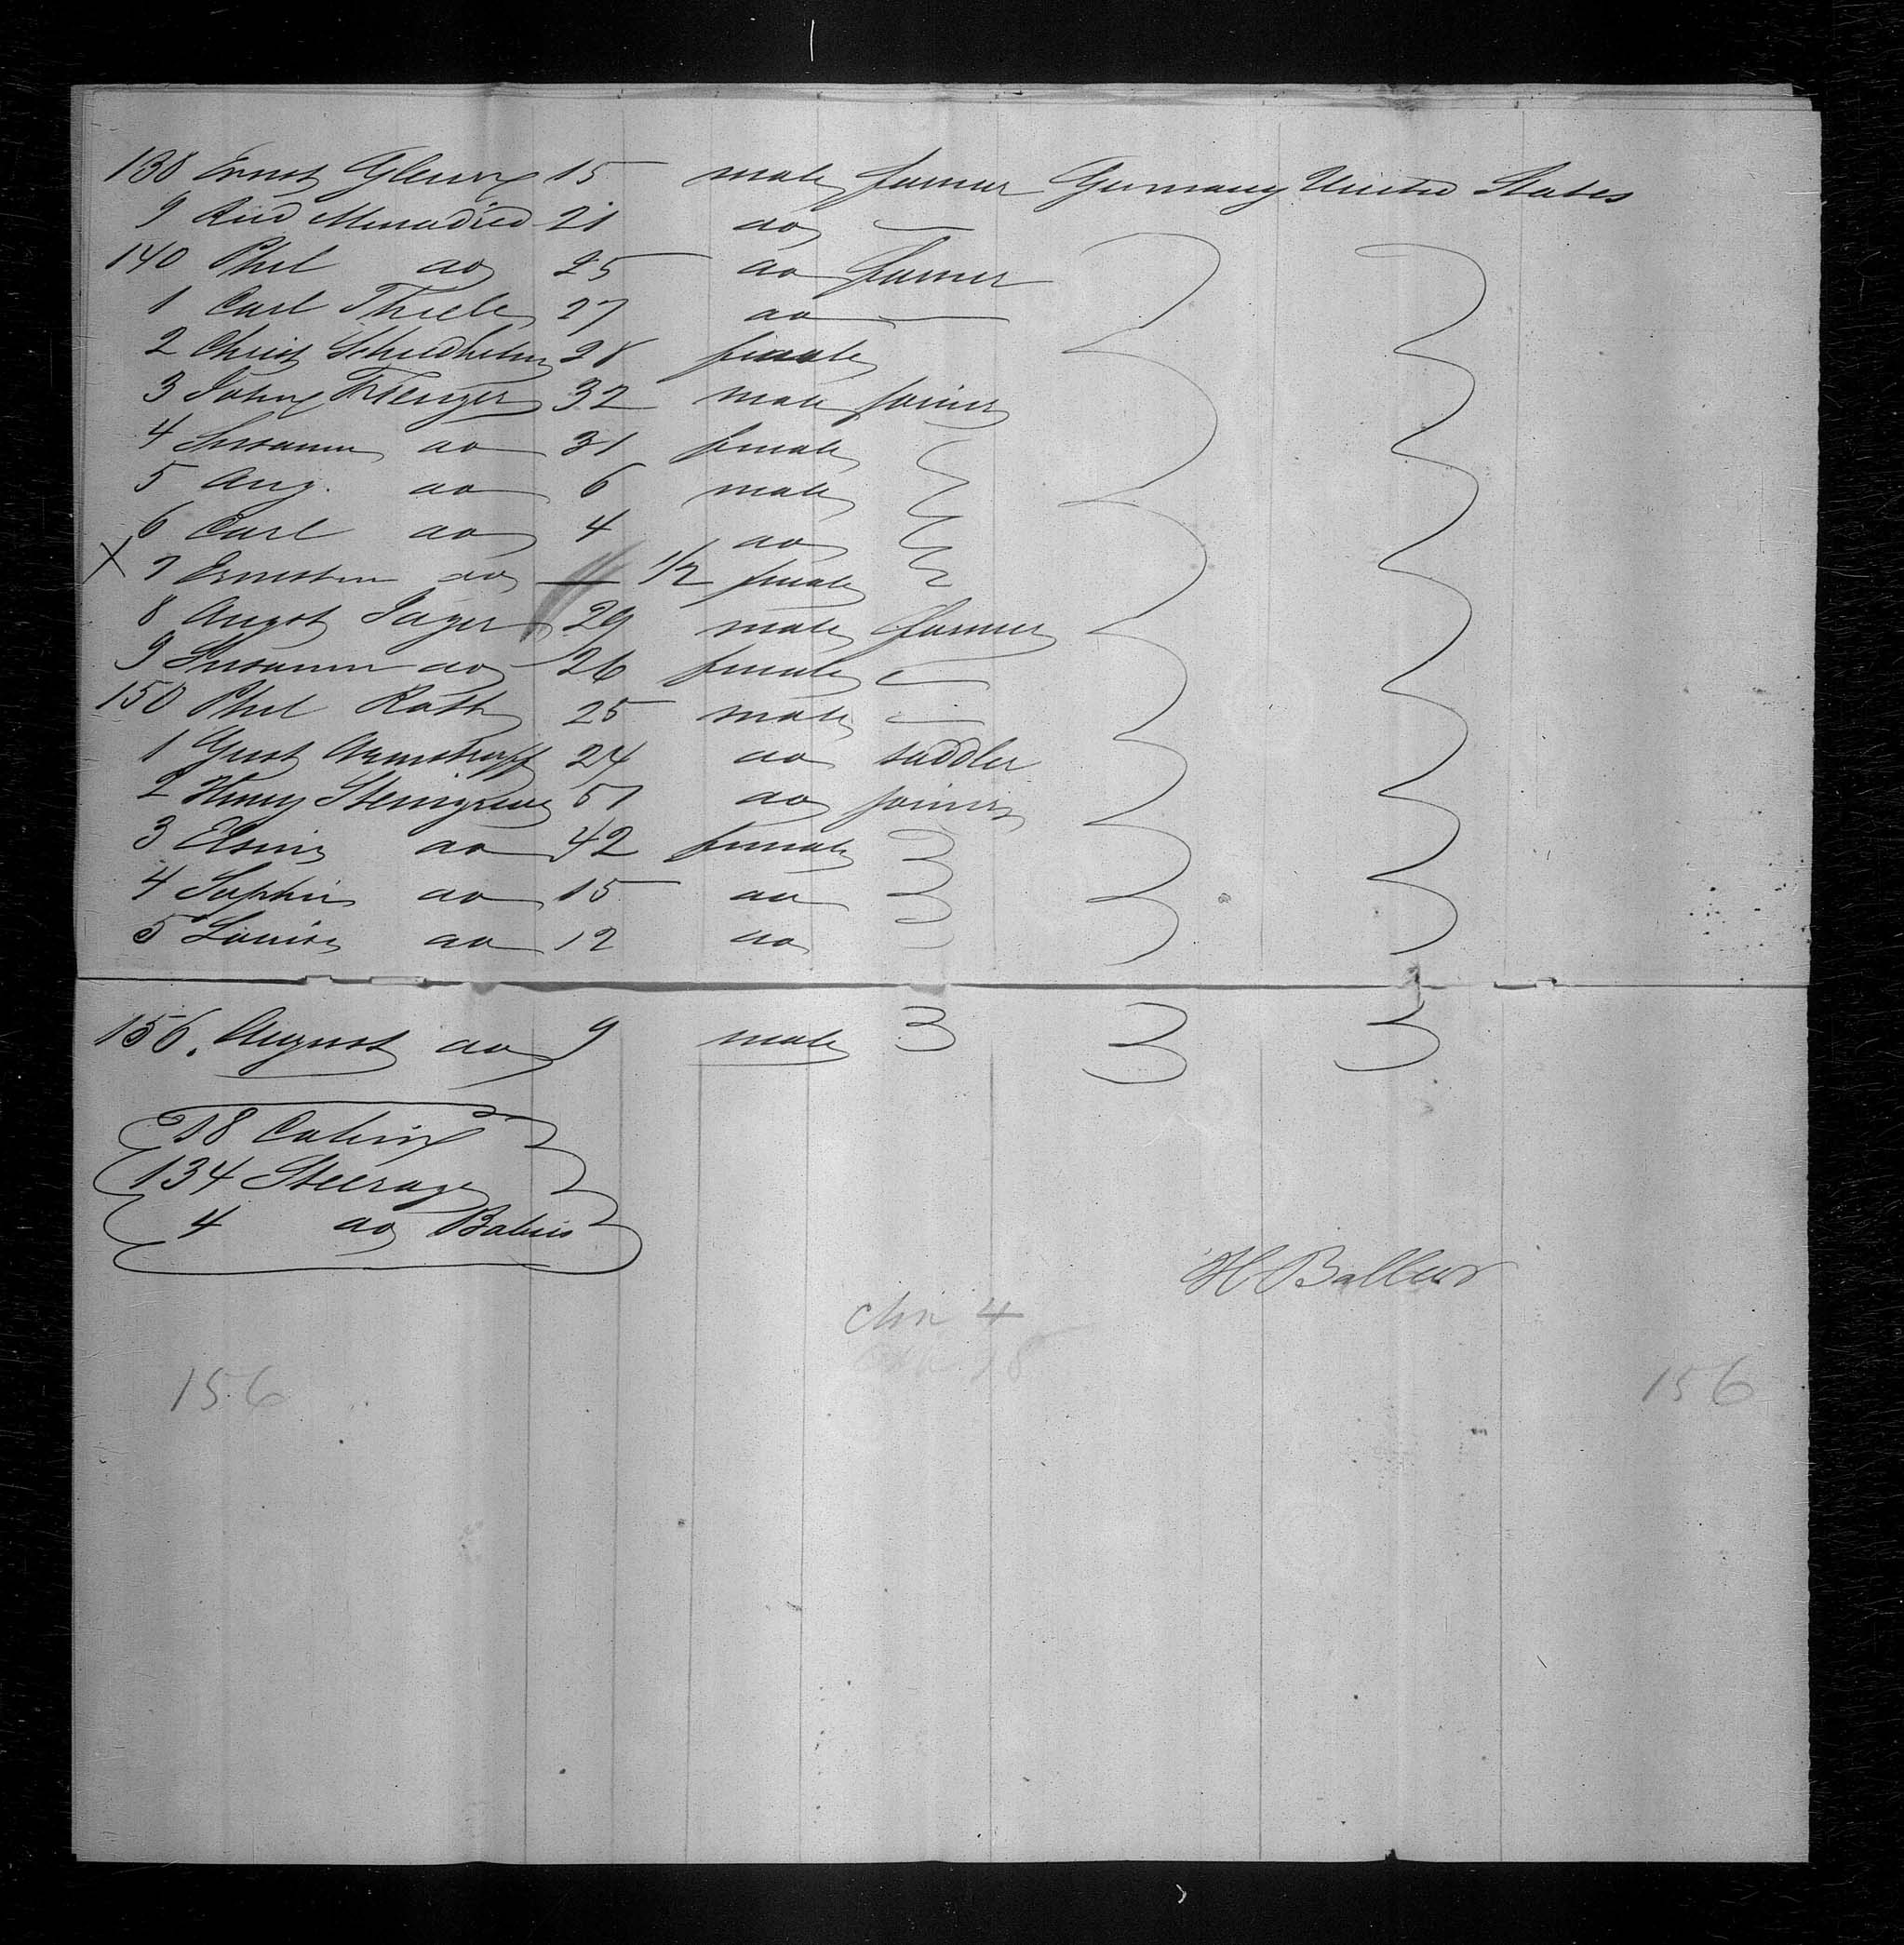 138 Ernst 15 male farmer Germany United States
9 21 do —
140 Phil do 25 do farmer
1 Carl Thiele 27 do —
2 Christ 28 female
3 John 32 male joiner
4 Susanne do 31 female
5 Aug. do 6 male
6 Carl do 4 do
X 7 Ernestine do — 1/2 female
8 August Jager 29 male farmer
9 Susanne do 26 female —
150 Phil Roth 25 male —
1 Gust 24 do saddler
2 Henry 51 do joiner
3 do 42 female
4 Sophie do 15 do
5 Louise do 12 do
156. August do 9 male
18 Cabin
134 Steerage
4 do Babies
H
4
156 156